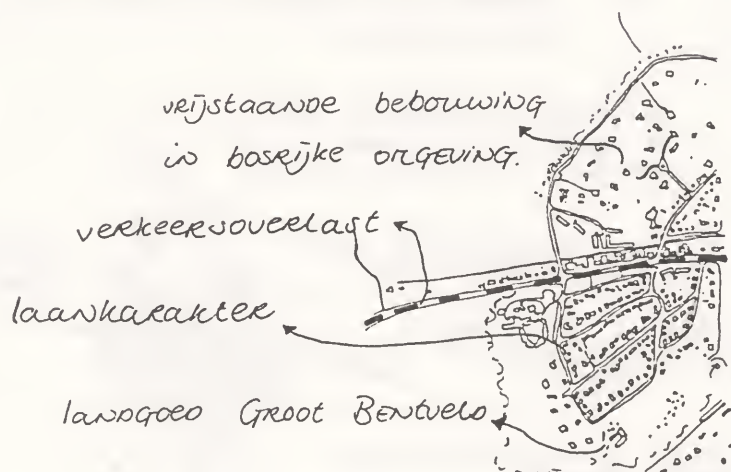 vrijstaande bebouwing
in bosrijke omgeving.
verkeersoverlast
laankarakter
landgoed Groot Bentveld